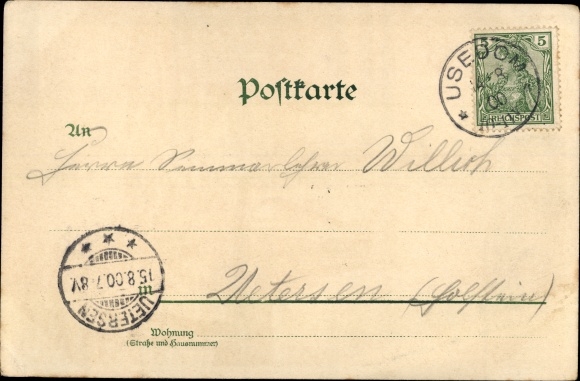 Postkarte
USEDOM
8
00
5 5
REICHSPOST
An
Herrn Seminarlehrer Willich
in Uetersen (Holstein)
15.8.00.7-8V.
UETERSEN
Wohnung
(Straße und Hausnummer)